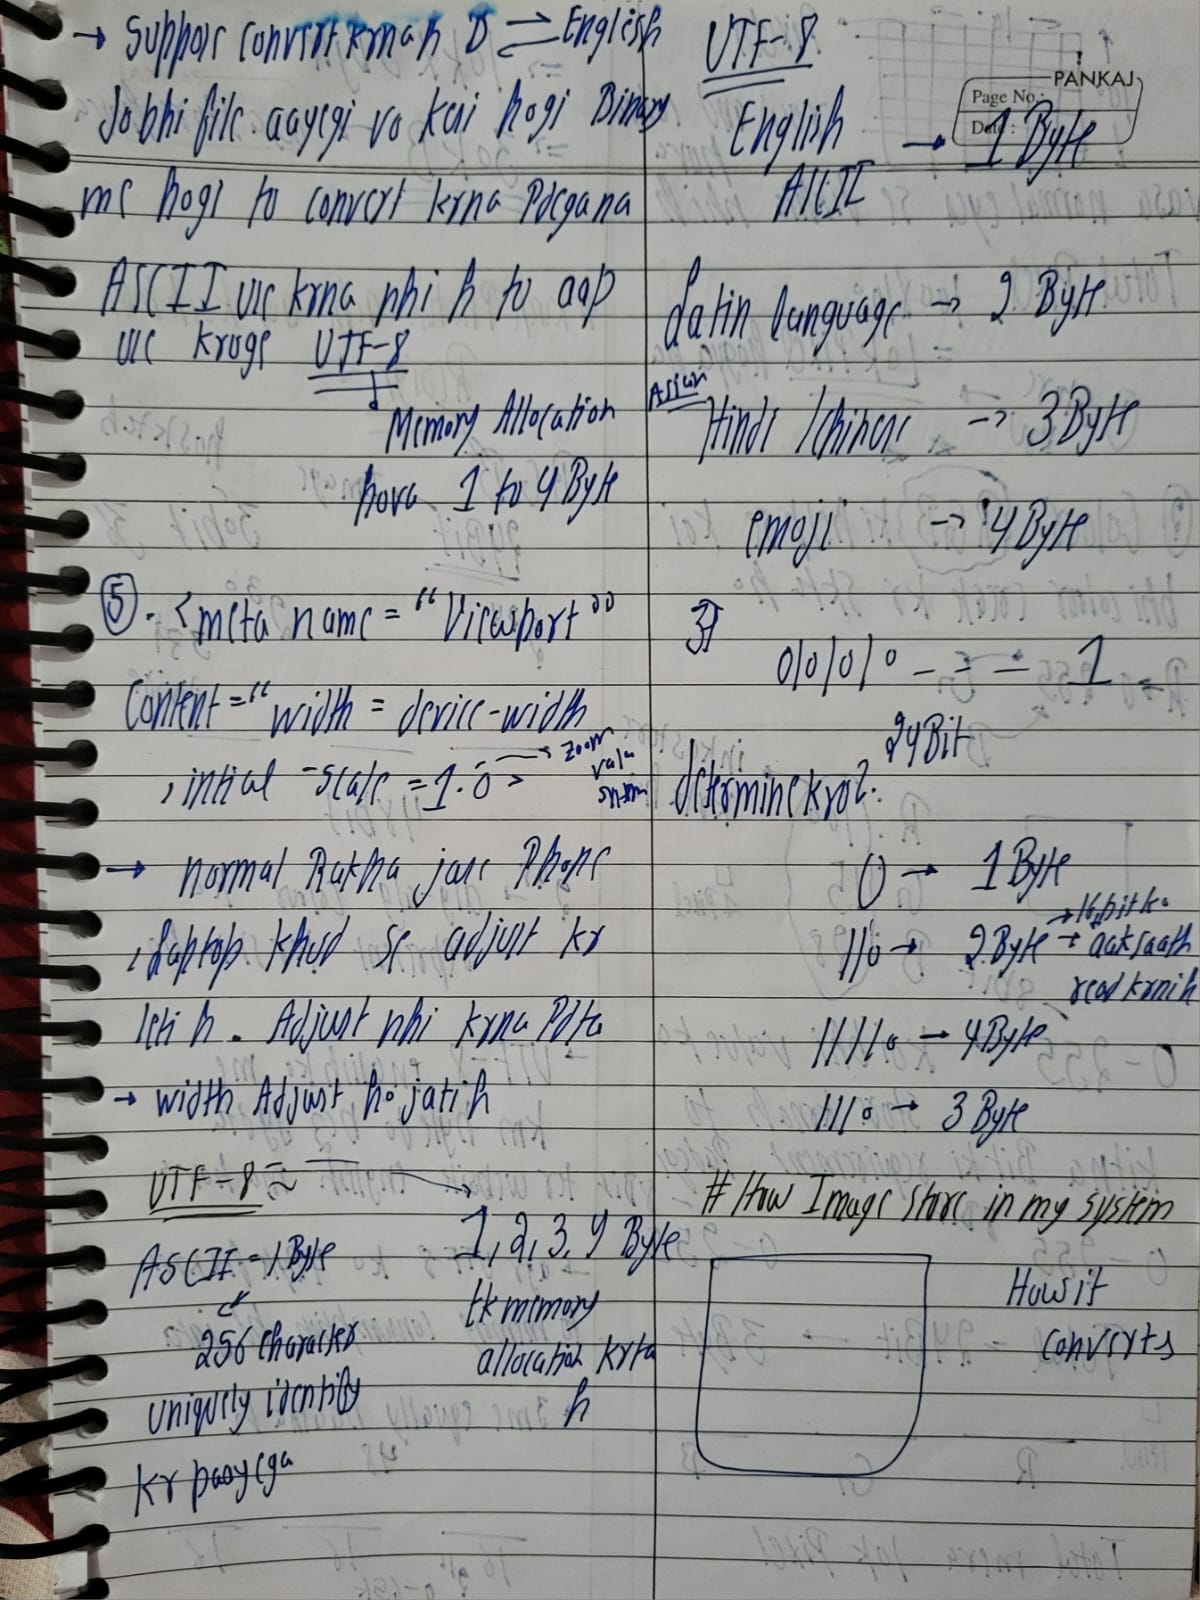 → Suppose convert krna h D ⇌ English
Jobhi file aayegi vo kai hogi Binary
me hogi to convert krna Pdega na
ASCII use krna nhi h to aap
use kroge UTF-8
Memory Allocation
hova 1 to 4 Byte
⑤. <meta name = "Viewport"
Content = "width = device-width
, intial -scale = 1.0 >
→ zoom
vala
→ normal Rakha jaye Phone
, Laptop khud se adjust kr
leti h. Adjust nhi krna Pdta
→ width Adjust ho jati h
UTF-8 ≈
ASCII = 1 Byte
256 character
uniquely identify
kr paayega
1, 2, 3, 4 Byte
tk memory
allocation krta
h
UTF-8
PANKAJ
Page No.:
Date :
English → 1 Byte
ASCII
Latin language → 2 Byte
Asian
Hindi / chinese → 3 Byte
emoji → 4 Byte
अ
01010 - - - 1
24 Bit
determine kro?
0 → 1 Byte
110 → 2 Byte → 16 bit ko
aak saath
read krni h
11110 → 4 Byte
1110 → 3 Byte
# How Image store in my system
How it
converts